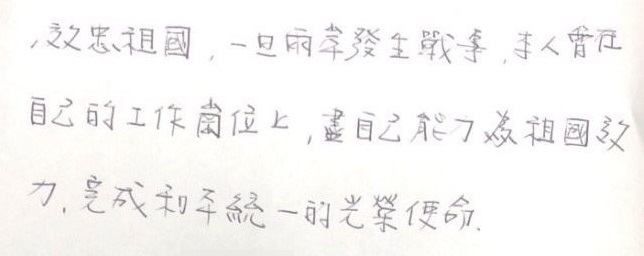 ,效忠祖國,一旦兩岸發生戰爭,本人會在
自己的工作崗位上,盡自己能力為祖國效
力.完成和平統一的光榮使命.